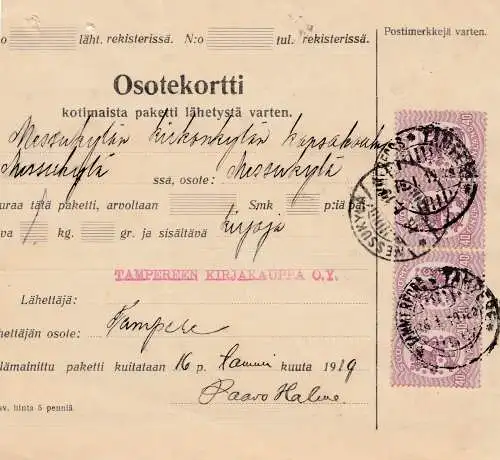 :o läht. rekisterissä. N:o tul. rekisterissä.
Postimerkkejä varten.
Osotekortti
kotimaista paketti lähetystä varten.
Messukylän kirkonkylän kansakoulu
Messukylä ssa, osote: Messukylä
uraa tätä paketti, arvoltaan Smk p:iä pai-
va 1 kg. gr. ja sisältävä kirjoja
TAMPEREEN KIRJAKAUPPA O.Y.
Lähettäjä:
hettäjän osote: Tampere
lämainittu paketti kuitataan 16 p. tammi kuuta 1919
Paavo Halme
av. hinta 5 penniä.
TAMPERE
TAMMERFORS
MESSUKYLÄ
TAMPERE
TAMMERFORS
40
40